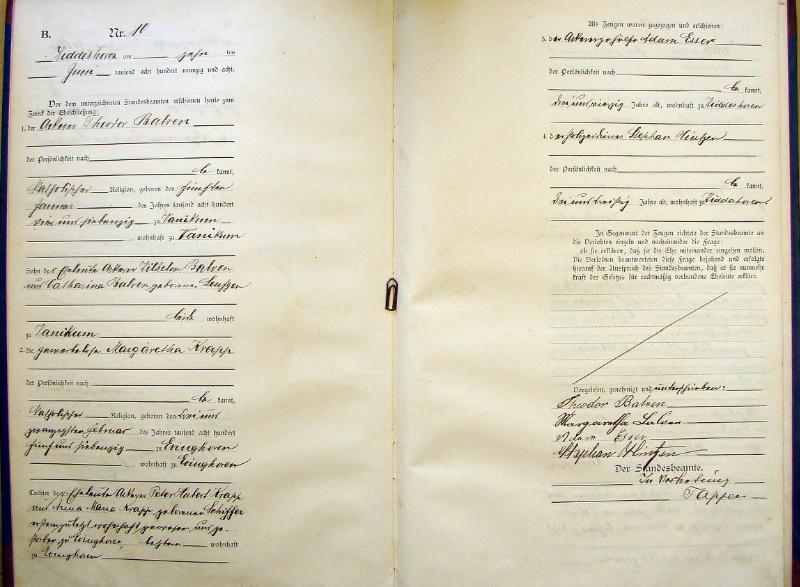 B. Nr. 10
Widdeshoven am zehn ten
Juni tausend acht hundert neunzig und acht.
Vor dem unterzeichneten Standesbeamten erschienen heute zum
Zweck der Eheschließung:
1. der Ackerer Theodor Balven
der Persönlichkeit nach
be kannt,
katholischer Religion, geboren den fünften
Januar des Jahres tausend acht hundert
vier und siebenzig zu Vanikum
, wohnhaft zu Vanikum
Sohn der Eheleute Ackerer Balven
und Catharina Balven geborenen
beide wohnhaft
zu Vanikum
2. die gewerbelose Margaretha Krapp
der Persönlichkeit nach
be kannt,
katholischer Religion, geboren den drei und
zwanzigsten Februar des Jahres tausend acht hundert
fünf und siebenzig zu Evinghoven
, wohnhaft zu Evinghoven
Tochter der Eheleute Ackerer Peter Hubert Krapp
und Anna Maria Krapp geborenen Schiffer
ersterer zuletzt wohnhaft gewesen und ge-
storben zu Evinghoven, letztere wohnhaft
zu Evinghoven
Als Zeugen waren zugezogen und erschienen:
3. der Adam Esser
der Persönlichkeit nach
be kannt,
drei und vierzig Jahre alt, wohnhaft zu Widdeshoven
4. der Stephan Hintzen
der Persönlichkeit nach
be kannt,
drei und dreißig Jahre alt, wohnhaft zu Widdeshoven
In Gegenwart der Zeugen richtete der Standesbeamte an
die Verlobten einzeln und nacheinander die Frage:
ob sie erklären, daß sie die Ehe miteinander eingehen wollen.
Die Verlobten beantworteten diese Frage bejahend und erfolgte
hierauf der Ausspruch des Standesbeamten, daß er sie nunmehr
kraft des Gesetzes für rechtmäßig verbundene Eheleute erkläre.
Vorgelesen, genehmigt und unterschrieben:
Theodor Balven
Margaretha Balven
Adam Esser
Stephan Hintzen
Der Standesbeamte.
In Vertretung
Tappen